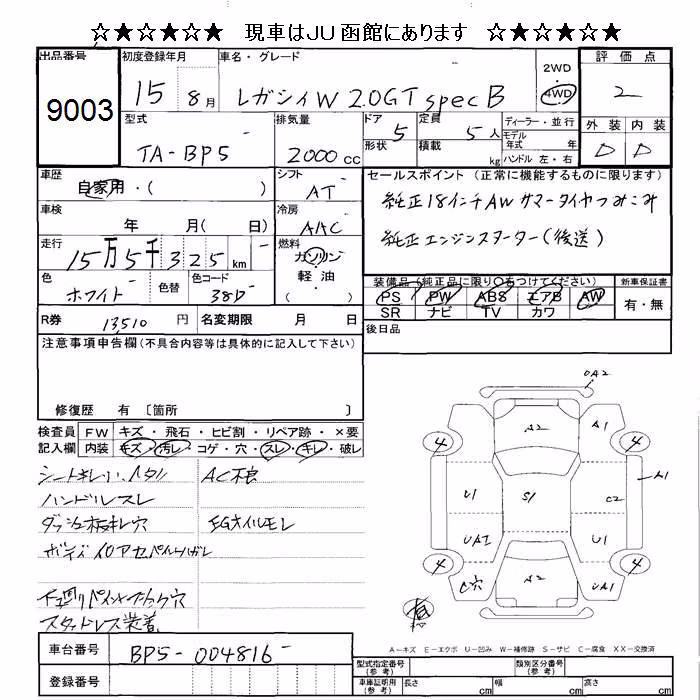 ☆★☆★☆★ 現車はJU函館にあります ☆★☆★☆★
出品番号 9003
初度登録年月 15 8月
車名・グレード レガシィW 2.0GT specB
2WD 4WD
評価点 2
型式 TA-BP5
排気量 2000cc
ドア 5 形状
定員 5人 積載 kg
ディーラー・並行
モデル年式 年
ハンドル 左・右
外装 D 内装 D
車歴 自家用・( )
シフト AT
セールスポイント(正常に機能するものに限ります)
純正18インチAWサマータイヤつみこみ
純正エンジンスターター(後送)
車検 年 月(日)
冷房 AAC
走行 15万5千325km
燃料 ガソリン 軽油 ( )
色 ホワイト 色替 色コード 38D
装備品(純正品に限り○をつけてください) 新車保証書
PS PW ABS エアB AW 有・無
SR ナビ TV カワ
R券 13,510円 名変期限 月 日
後日品
注意事項申告欄(不具合内容等は具体的に記入して下さい)
修復歴 有〔箇所
検査員記入欄 FW キズ・飛石・ヒビ割・リペア跡・×要
内装 キズ・汚レ・コゲ・穴・スレ・キレ・破レ
AC不良
ハンドルスレ
EGオイルモレ
スタッドレス装着
UA2
A2 A1
4 4
A1
U1 S1 C2
UA1 U1
4 4
C穴 A2 UA1
A-キズ E-エクボ U-凹み W-補修跡 S-サビ C-腐食 XX-交換済
車台番号 BP5-004816
登録番号
型式指定番号(参考) 類別区分番号(参考)
車庫証明用(参考) 長さ cm 幅 cm 高さ cm